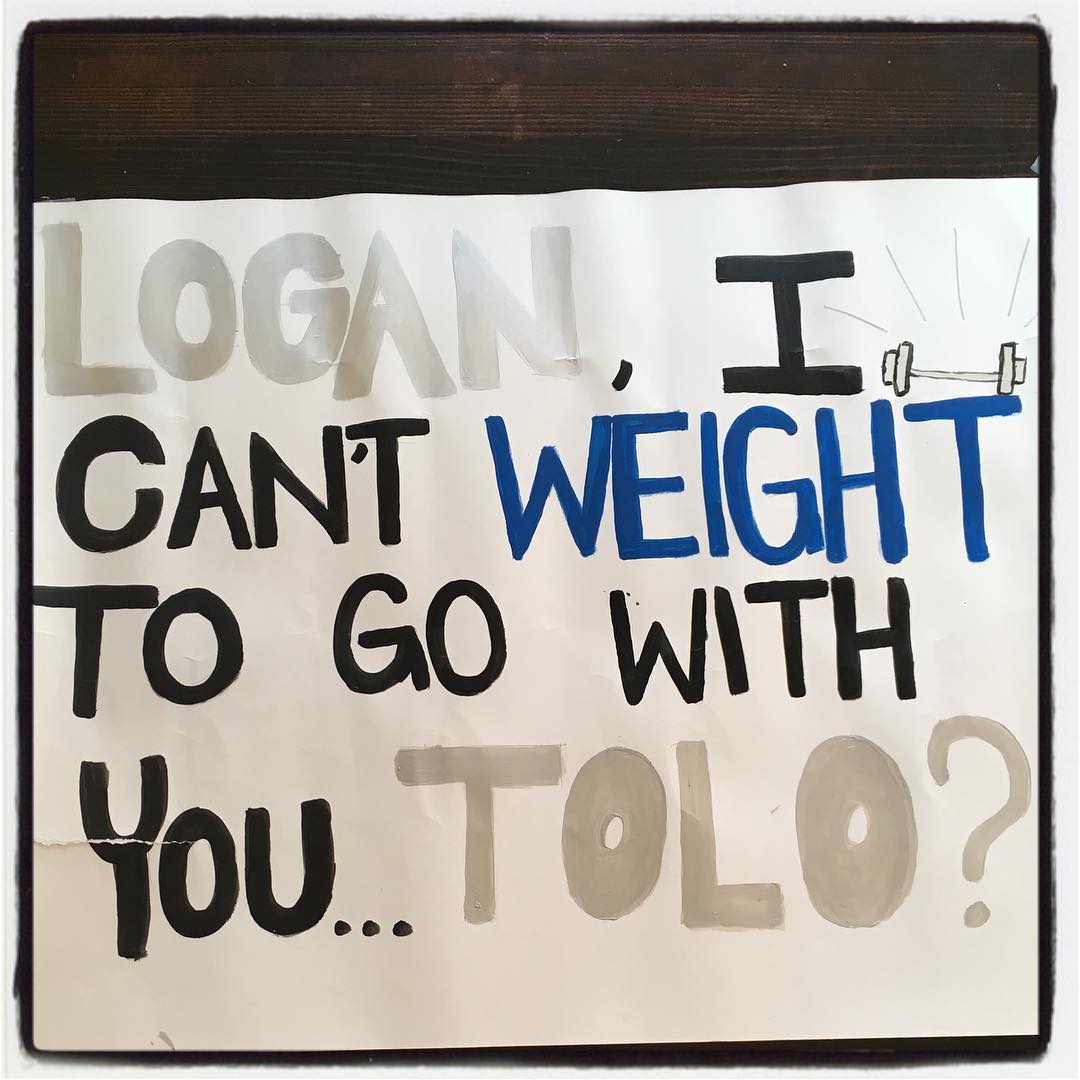 LOGAN, I
CAN'T WEIGHT
TO GO WITH
YOU... TOLO?